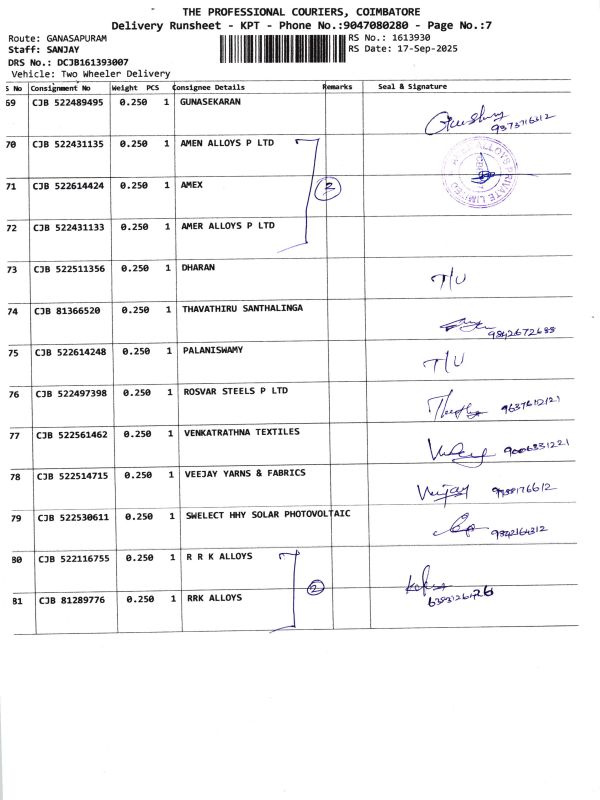 THE PROFESSIONAL COURIERS, COIMBATORE
Delivery Runsheet - KPT - Phone No.:9047080280 - Page No.:7
Route: GANASAPURAM
RS No.: 1613930
Staff: SANJAY
RS Date: 17-Sep-2025
DRS No.: DCJB161393007
Vehicle: Two Wheeler Delivery
S No Consignment No Weight PCS Consignee Details Remarks Seal & Signature
69 CJB 522489495 0.250 1 GUNASEKARAN
70 CJB 522431135 0.250 1 AMEN ALLOYS P LTD
71 CJB 522614424 0.250 1 AMEX 2
PRIVATE LIMITED
72 CJB 522431133 0.250 1 AMER ALLOYS P LTD
73 CJB 522511356 0.250 1 DHARAN T/U
74 CJB 81366520 0.250 1 THAVATHIRU SANTHALINGA
9842672688
75 CJB 522614248 0.250 1 PALANISWAMY T/U
76 CJB 522497398 0.250 1 ROSVAR STEELS P LTD
77 CJB 522561462 0.250 1 VENKATRATHNA TEXTILES
78 CJB 522514715 0.250 1 VEEJAY YARNS & FABRICS
79 CJB 522530611 0.250 1 SWELECT HHY SOLAR PHOTOVOLTAIC
80 CJB 522116755 0.250 1 R R K ALLOYS
2
81 CJB 81289776 0.250 1 RRK ALLOYS